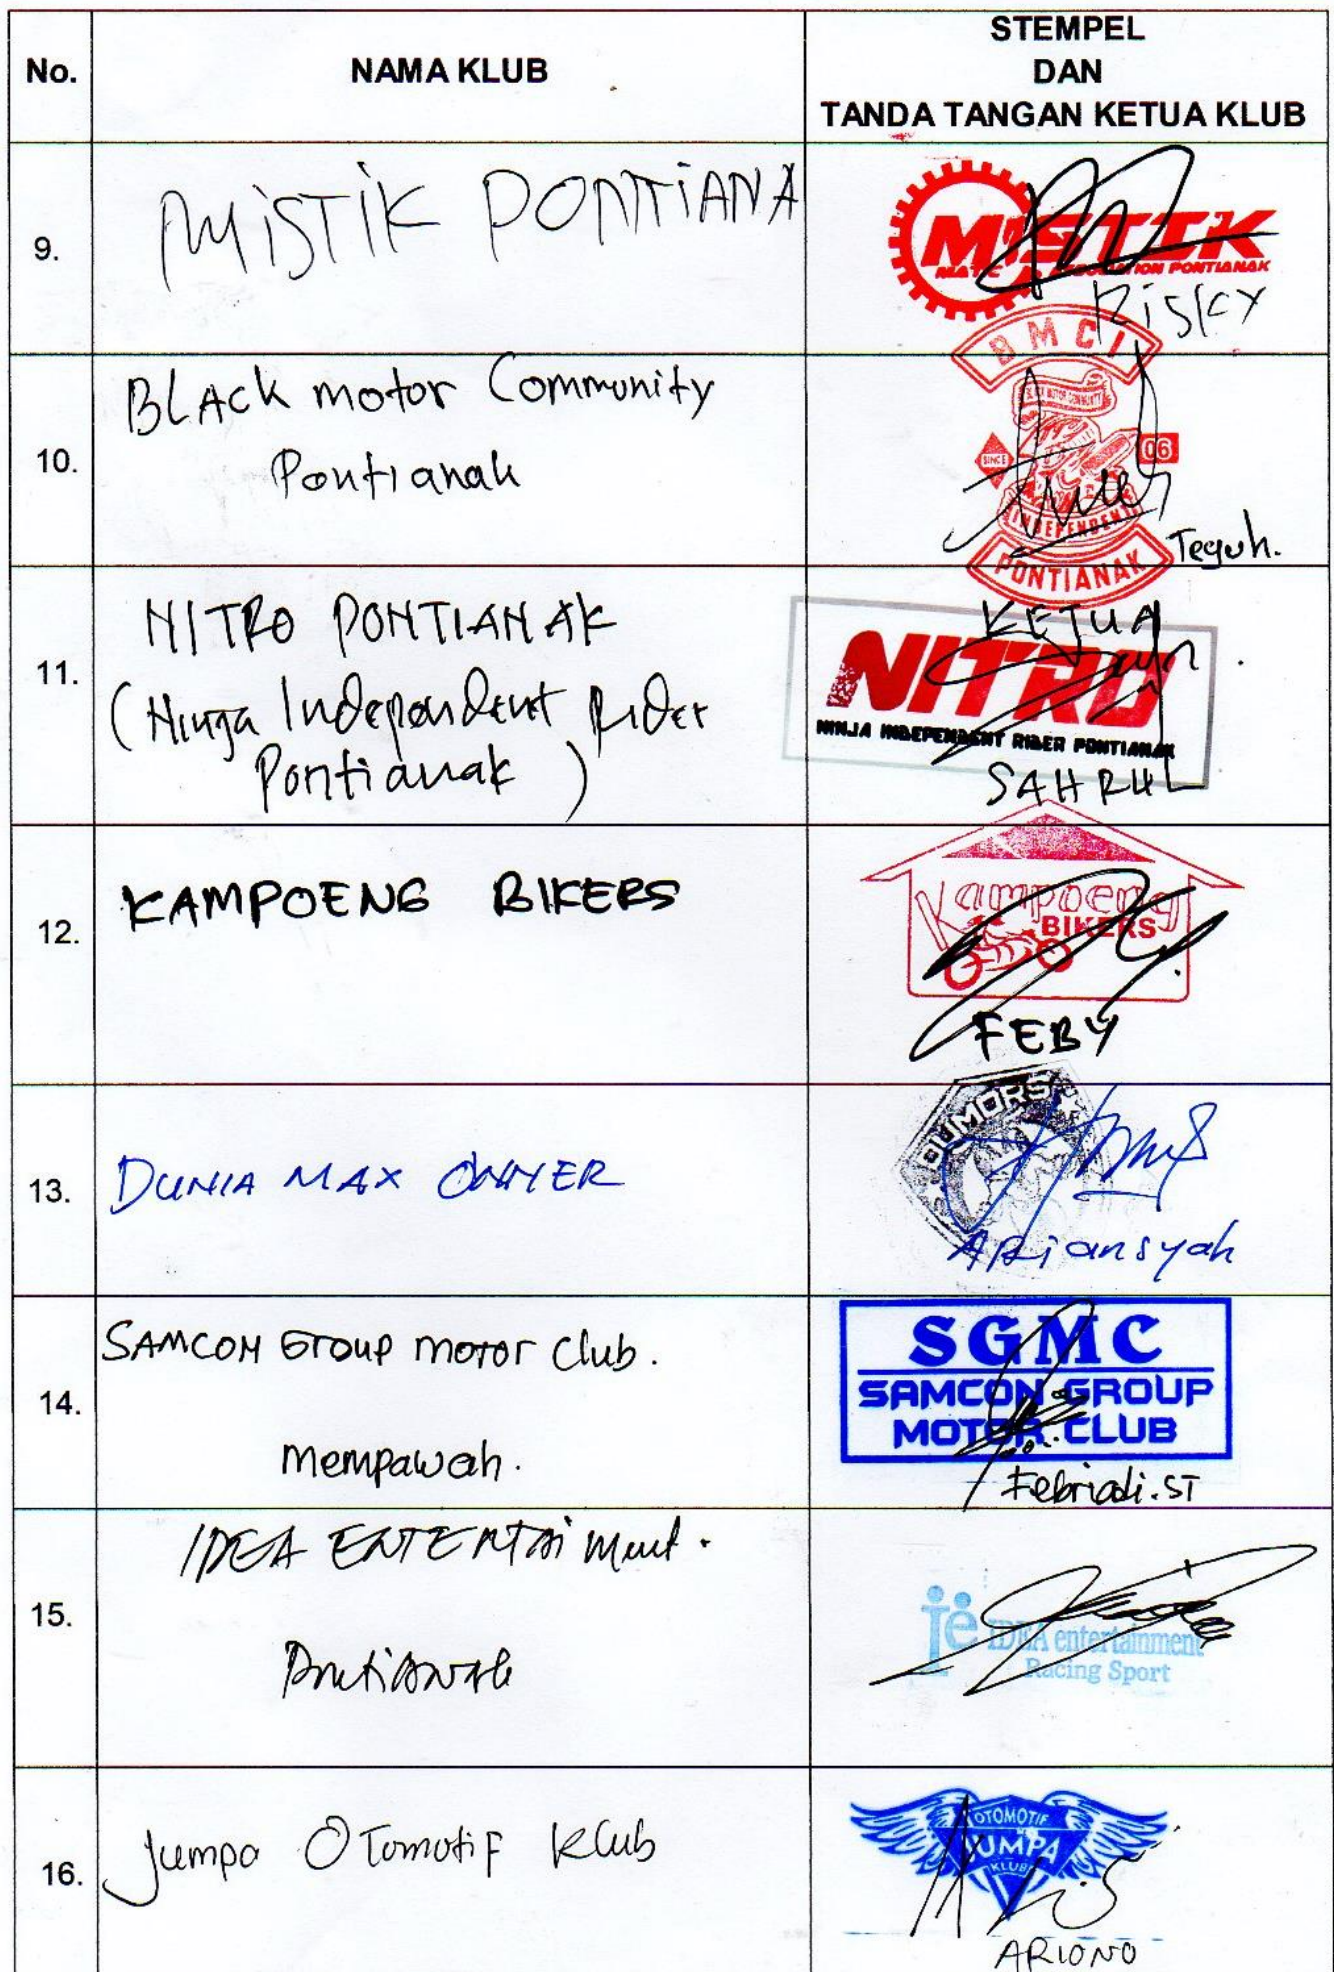 No.
NAMA KLUB
STEMPEL
DAN
TANDA TANGAN KETUA KLUB
9.
MISTIK PONTIANA
MISTIK
PONTIANAK
RISKY
10.
BLACK motor Community
Pontianak
BMCI
BLACK MOTOR COMMUNITY
SINCE
06
INDEPENDENT
PONTIANAK
Teguh.
11.
NITRO PONTIANAK
(Ninja Independent Rider
Pontianak)
KETUA
NITRO
NINJA INDEPENDENT RIDER PONTIANAK
SAHRUL
12.
KAMPOENG BIKERS
Kampoeng
BIKERS
FEBY
13.
DUNIA MAX OWNER
DUMORS
ARiansyah
14.
SAMCON Group motor Club.
mempawah.
SGMC
SAMCON GROUP
MOTOR CLUB
Febriadi.ST
15.
IDEA ENTERTAiment.
Pontianak
ie
IDEA entertainment
Racing Sport
16.
Jumpa OTomotiF Klub
OTOMOTIF
JUMPA
KLUB
ARIONO